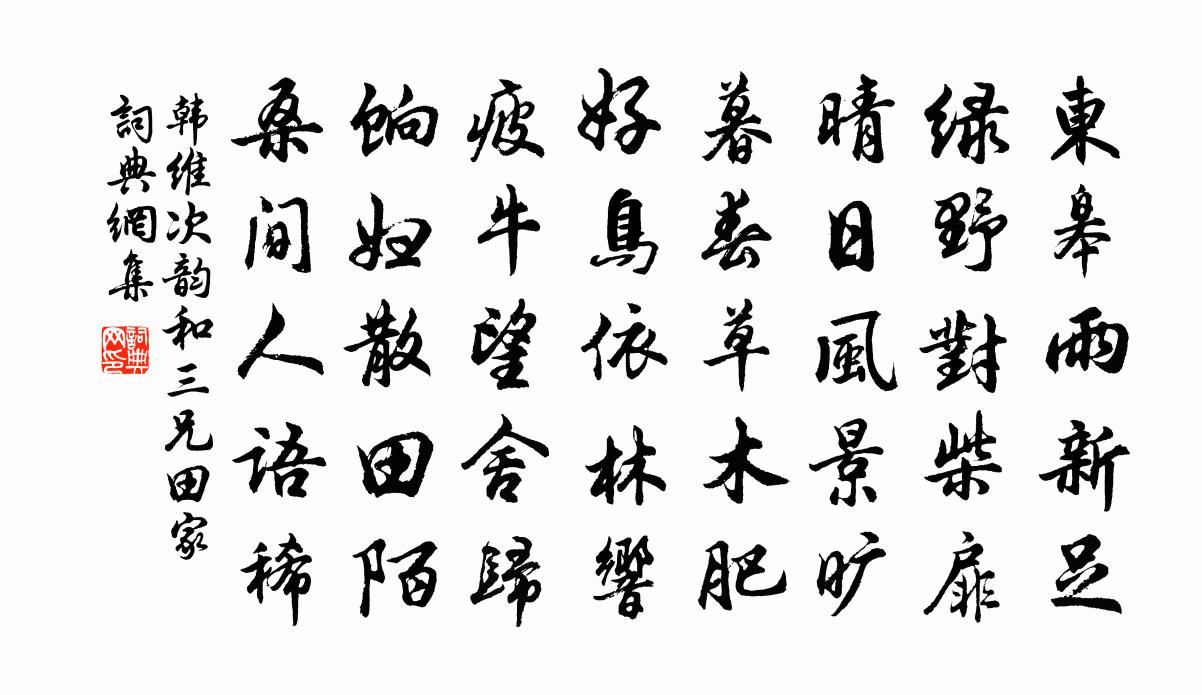 東皋雨新足
绿野對柴扉
晴日風景旷
暮春草木肥
好鳥依林響
疲牛望舍歸
饷妇散田陌
桑间人语稀
韩维次韵和三兄田家
詞典網集
詞典网印